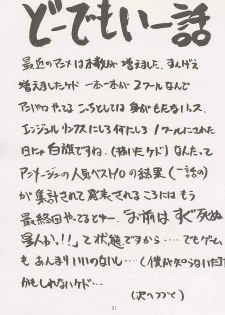 どーでもいー話
最近のアニメは本数が増えました。すんげえ
増えましたケド 一本一本が2クールなんで
アニパロやってるこっちとしては身がもたないっス。
エンジェルリンクスにしろ何にしろ1クールにされた
日にゃ白旗ですね。(描いたケド)なんたって
アニメージュの人気ベスト10の結果(一話の)
が集計されて発表されるころにはもう
最終回やってるとゆー。お前はすぐ死ぬ
星人か。!!って状態ですから‥‥でもゲーム
もあんまりいいのないし‥‥(僕が知らないだけ
かもしれないケド‥‥
(次へつづく)
21